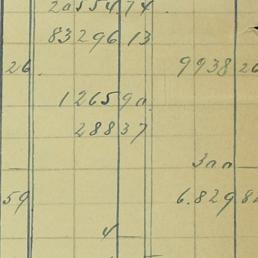 20554 74
83296 13
26 9938 26
12659 0.
288 37
300
59 6.829 82
4